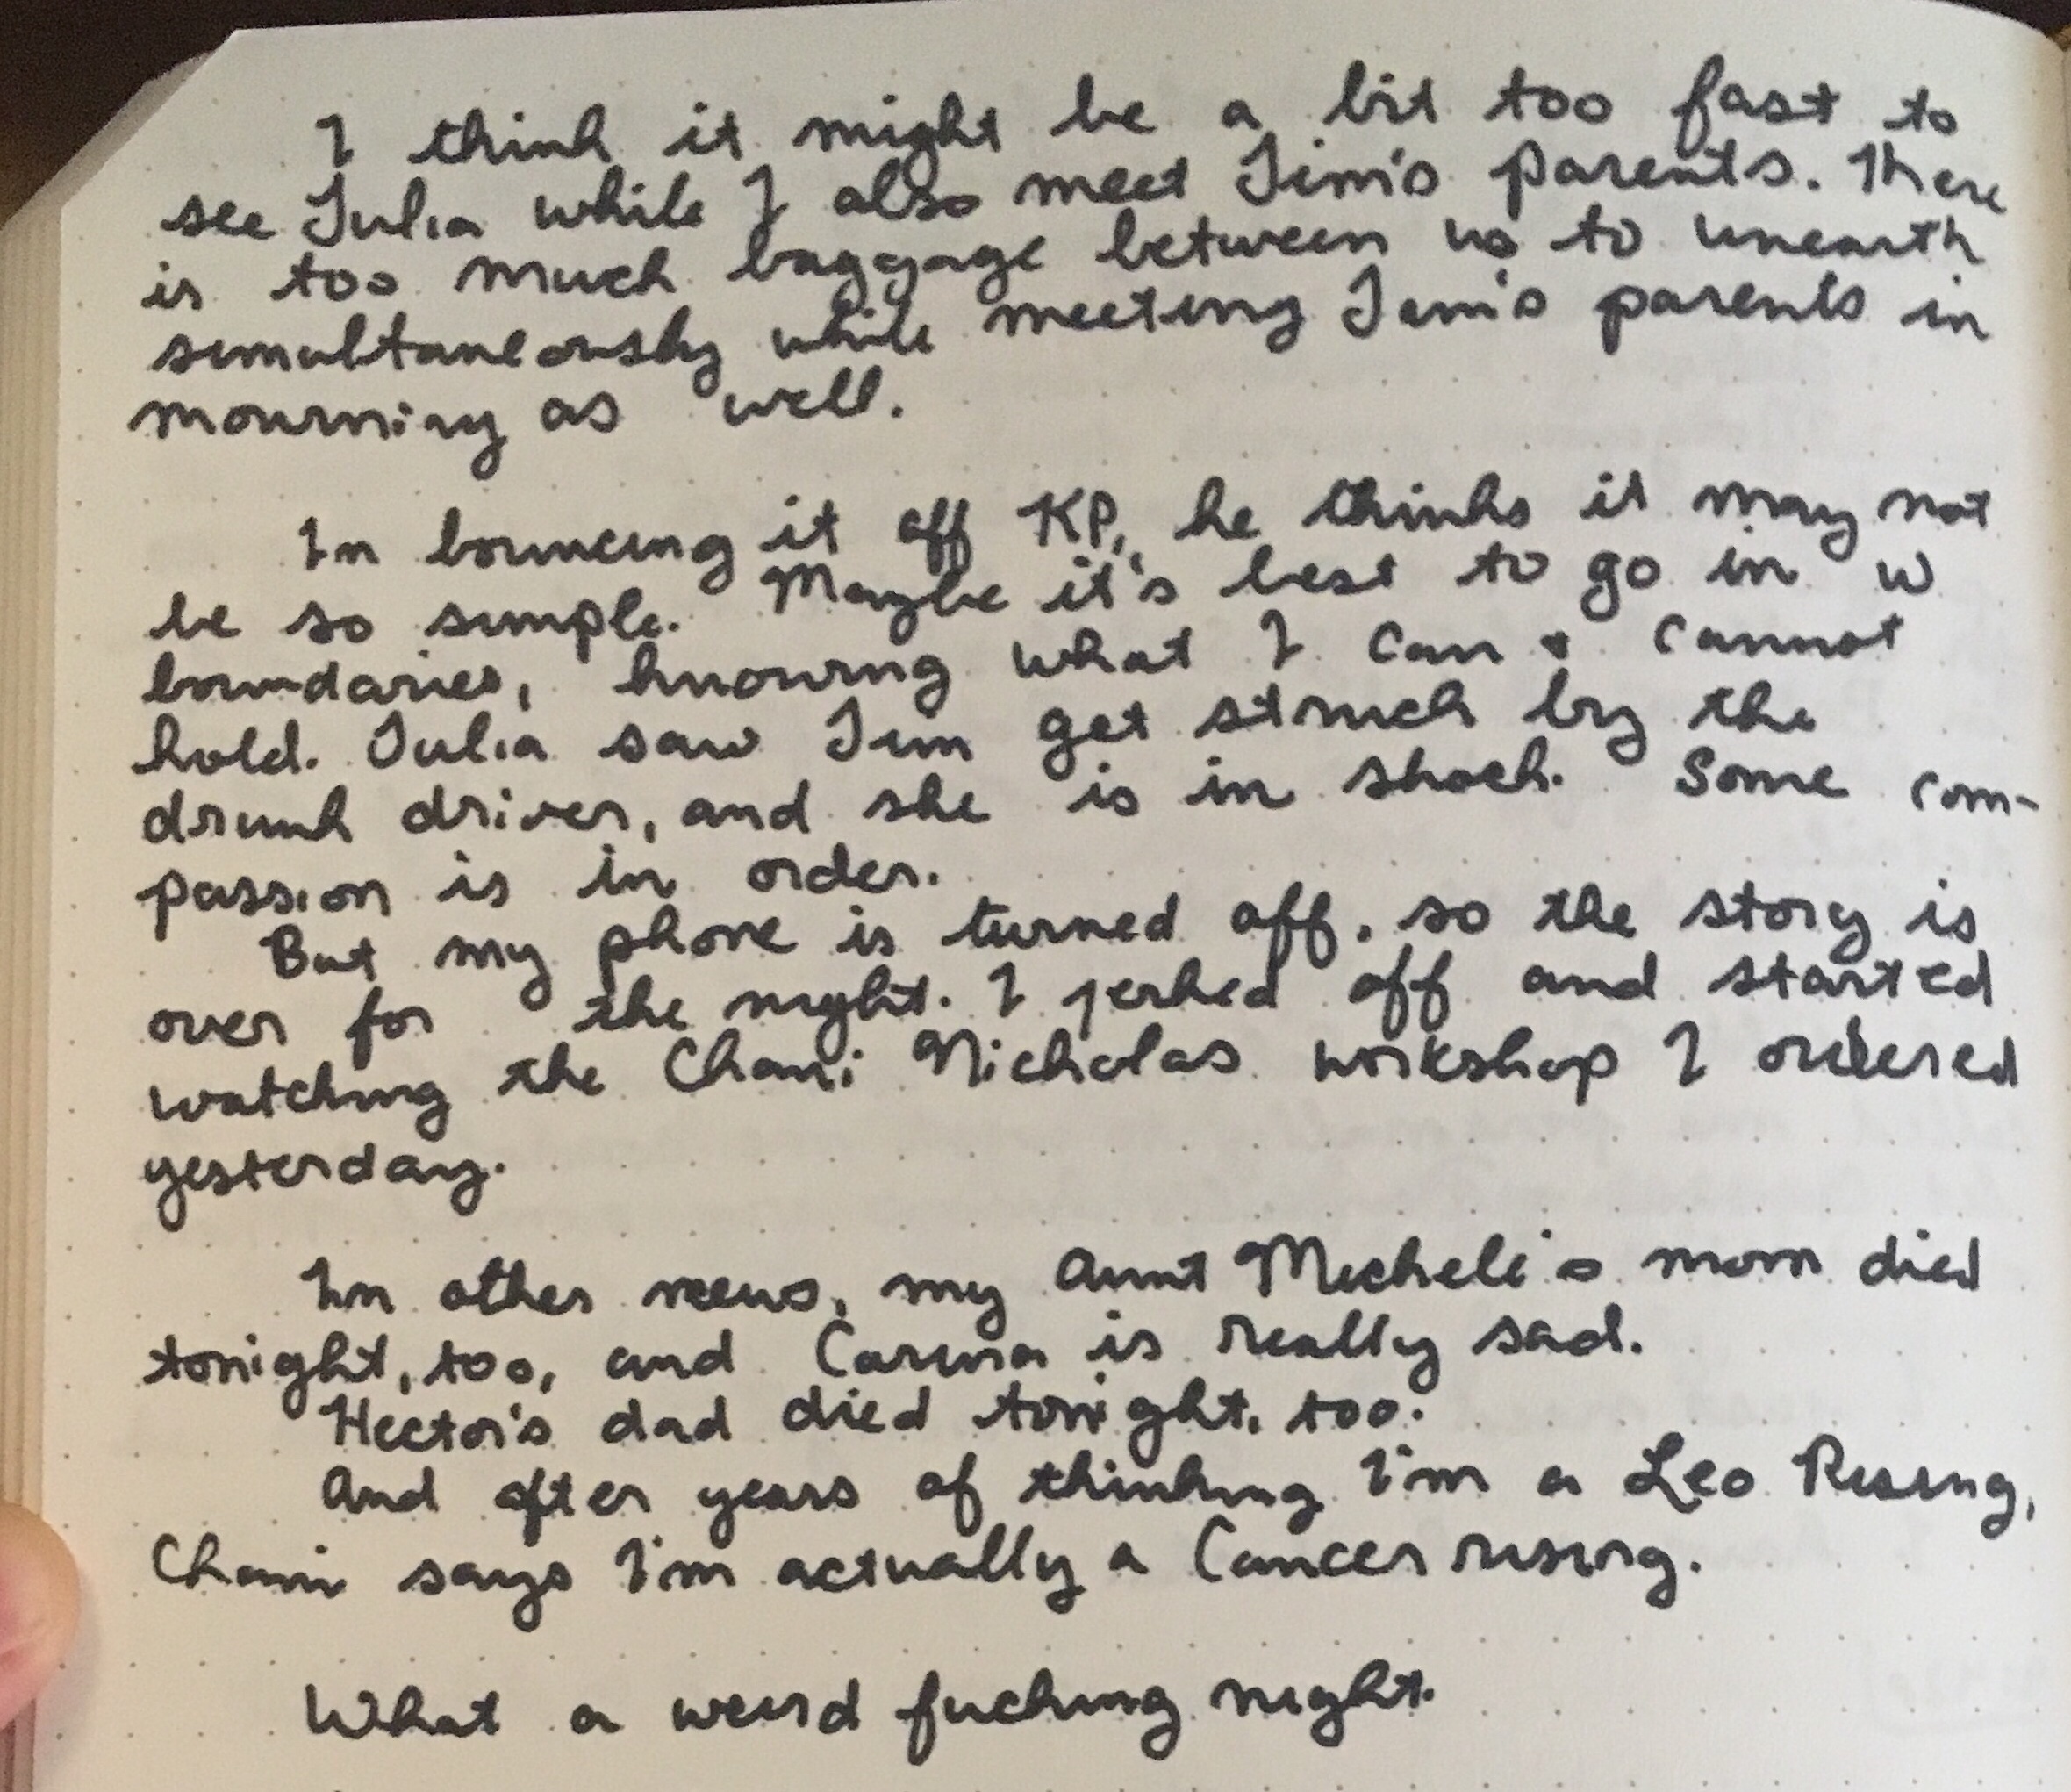 I think it might be a bit too fast to
see Julia while I also meet Jim's parents. There
is too much baggage between us to unearth
simultaneously while meeting Jim's parents in
mourning as well.
In bouncing it off KP, he thinks it may not
be so simple. Maybe it's best to go in w
boundaries, knowing what I can + cannot
hold. Julia saw Jim get struck by the
drunk driver, and she is in shock. Some com-
passion is in order.
But my phone is turned off, so the story is
over for the night. I jerked off and started
watching the Chani Nicholas workshop I ordered
yesterday.
In other news, my Aunt Michele's mom died
tonight, too, and Carina is really sad.
Hector's dad died tonight, too.
And after years of thinking I'm a Leo Rising,
Chani says I'm actually a Cancer rising.
What a weird fucking night.